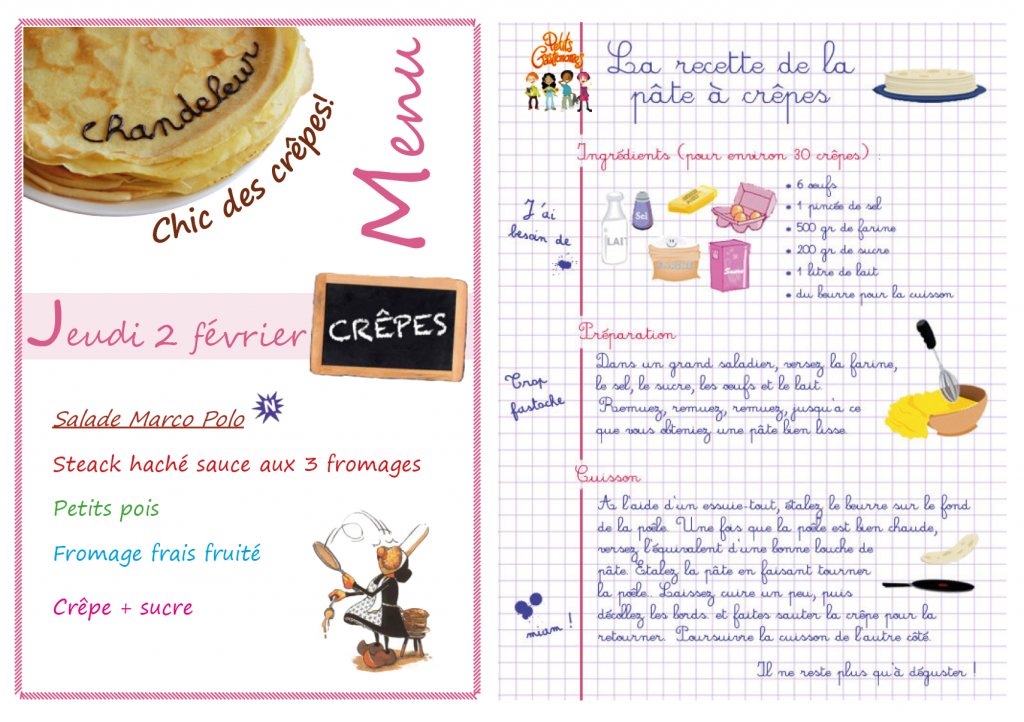 Chandeleur
Chic des crêpes!
Menu
Jeudi 2 février
CRÊPES
Salade Marco Polo
N
Steack haché sauce aux 3 fromages
Petits pois
Fromage frais fruité
Crêpe + sucre
Petits
Gastronomes
La recette de la
pâte à crêpes
Ingrédients (pour environ 30 crêpes) :
J'ai
besoin de
LAIT
Sel
Sucre
• 6 œufs
• 1 pincée de sel
• 500 gr de farine
• 200 gr de sucre
• 1 litre de lait
• du beurre pour la cuisson
Préparation
Trop
fastoche
Dans un grand saladier, versez la farine,
le sel, le sucre, les œufs et le lait.
Remuez, remuez, remuez, jusqu'a ce
que vous obteniez une pâte bien lisse.
Cuisson
A l'aide d'un essuie-tout, étalez le beurre sur le fond
de la poêle. Une fois que la poêle est bien chaude,
versez l'équivalent d'une bonne louche de
pâte. Etalez la pâte en faisant tourner
la poêle. Laissez cuire un peu, puis
décollez les bords. et faites sauter la crêpe pour la
retourner. Poursuivre la cuisson de l'autre côté.
miam !
Il ne reste plus qu'à déguster !